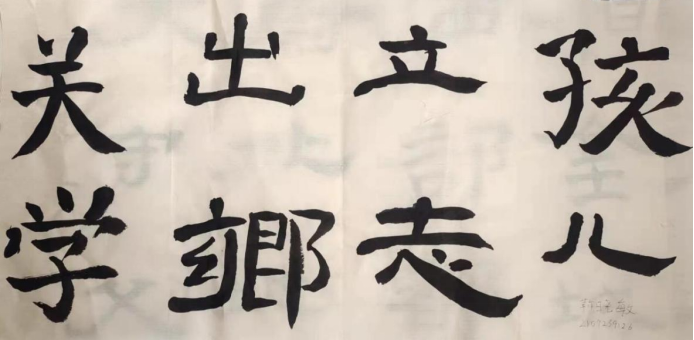 孩儿
立志
出鄉
关学